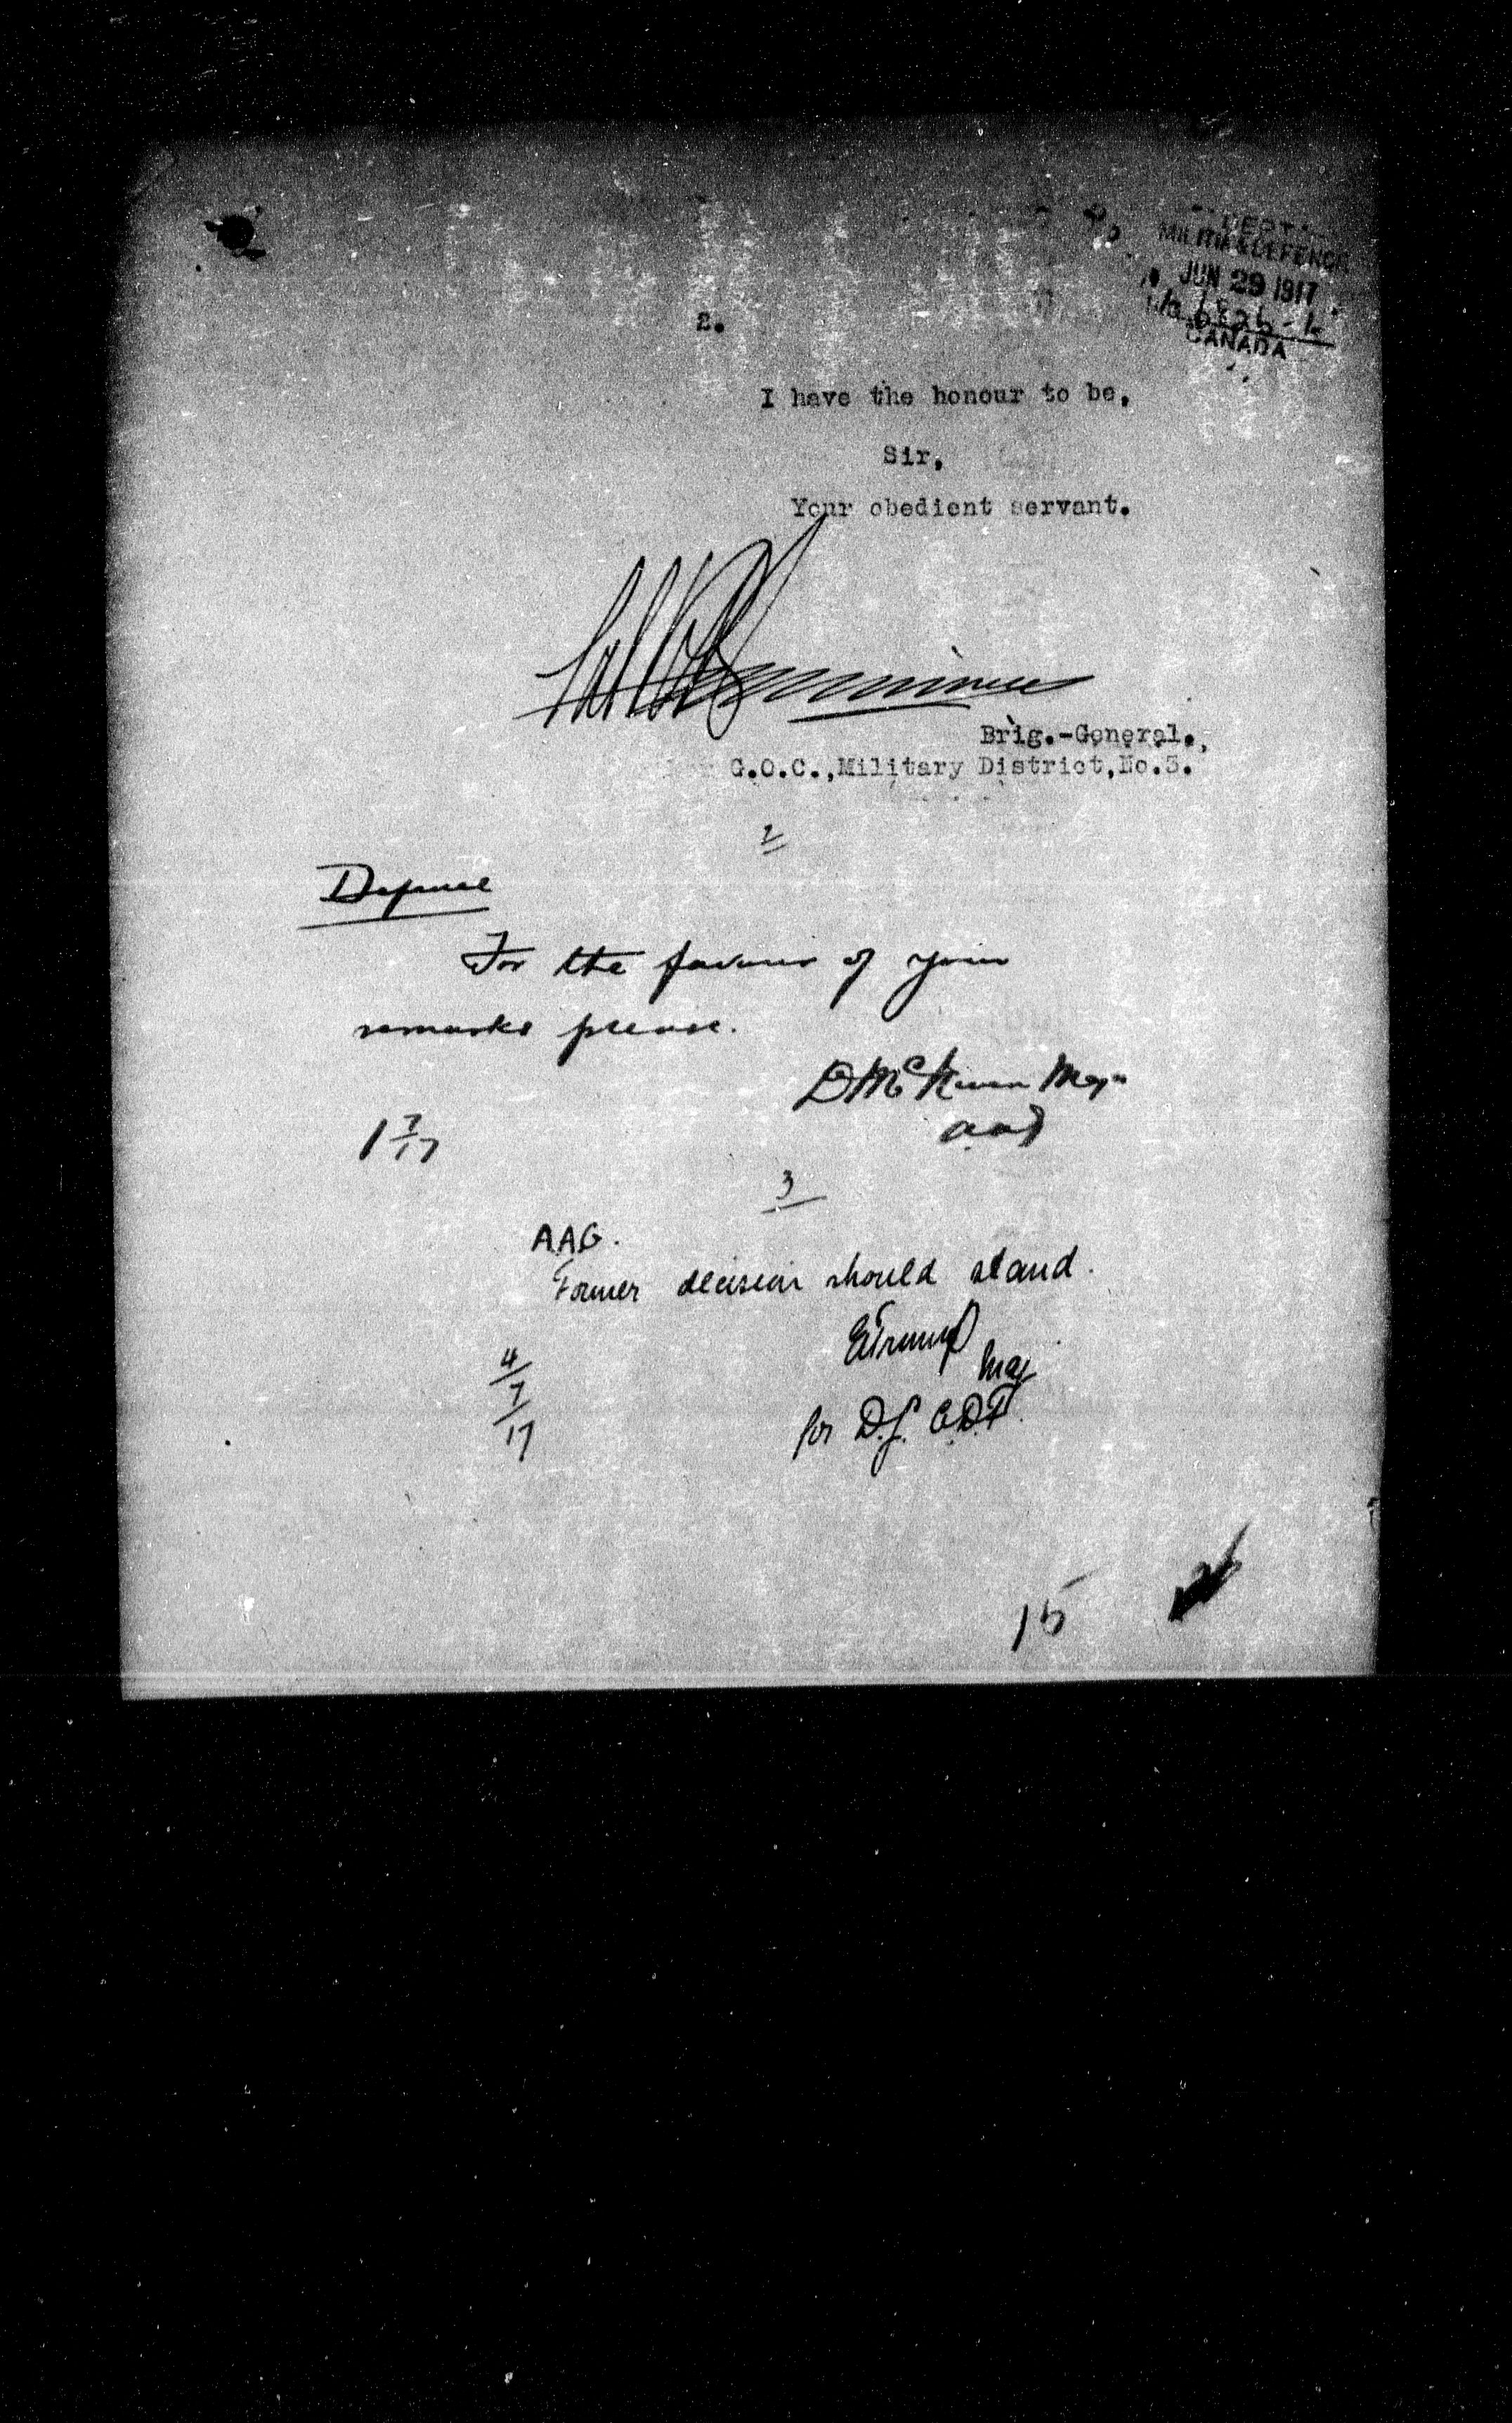 DEPT.
MILITIA & DEFENCE
JUN 29 1917
CANADA
2.
I have the honour to be,
Sir,
Your obedient servant.
Brig.-General.,
G.O.C.,Military District,No.3.
2
For the favour of your
remarks please.
1 7/17
3
AAG.
Former decision should stand.
Maj
4/7/17
for D.G. C.D.F.
15